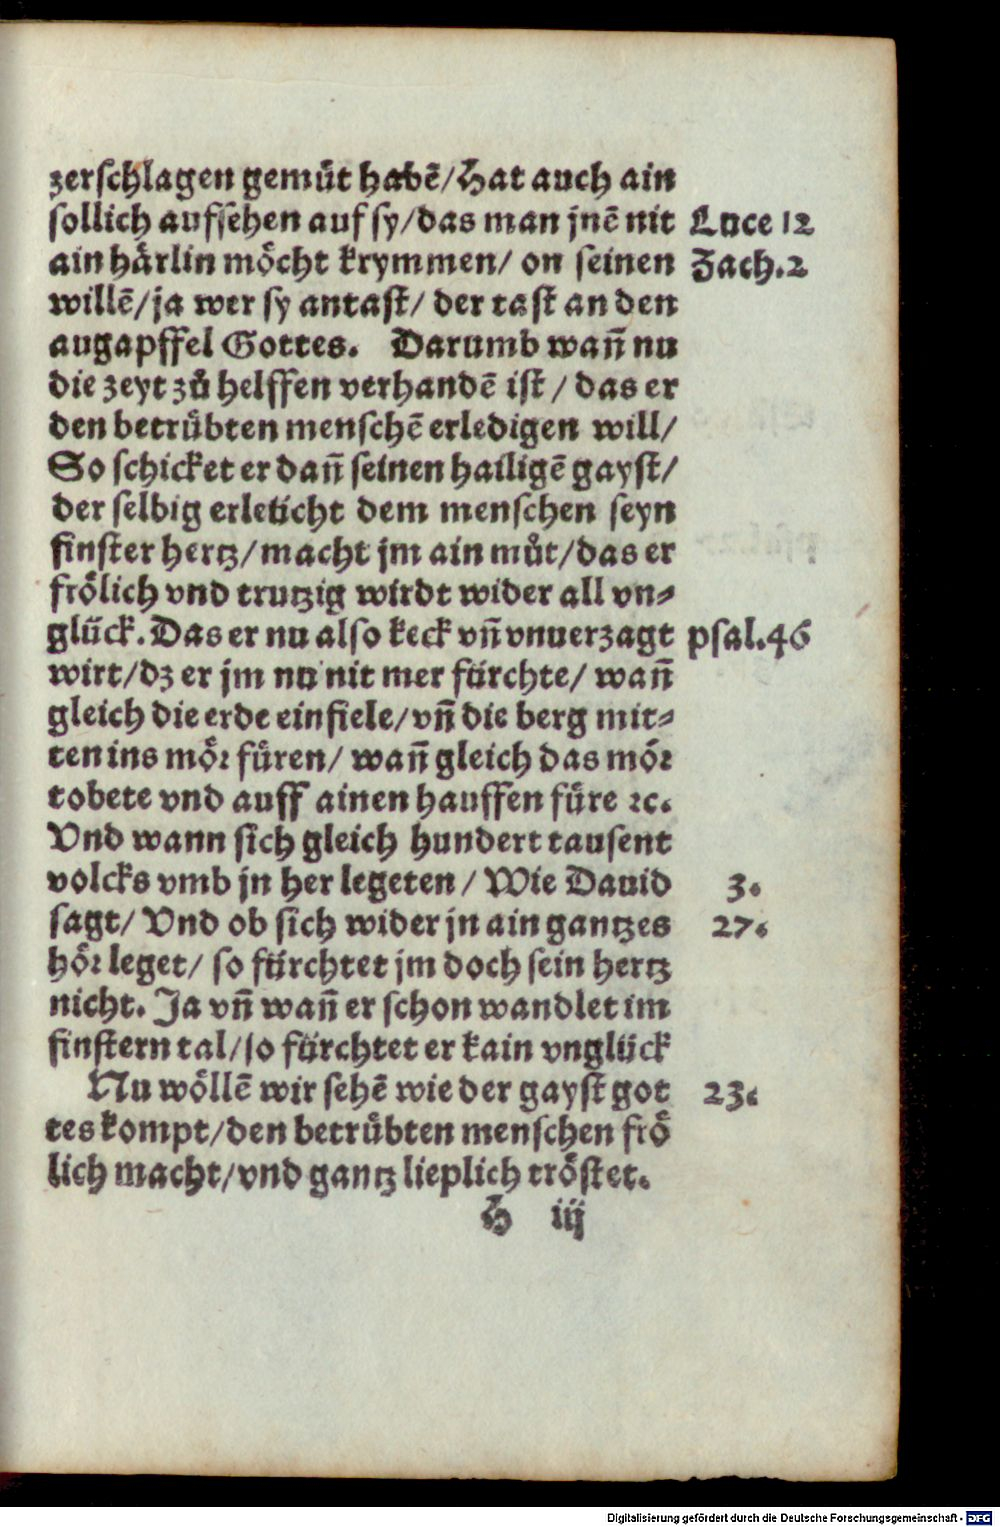 zerschlagen gemuͤt habē/ Hat auch ain
sollich aufsehen auf sy/ das man jnē nit Luce 12
ain haͤrlin moͤcht krymmen/ on seinen Zach.2
willē/ ja wer sy antast/ der tast an den
augapffel Gottes. Darumb wañ nu
die zeyt zuͦ helffen verhandē ist / das er
den betruͤbten menschē erledigen will/
So schicket er dañ seinen hailigē gayst/
der selbig erleücht dem menschen seyn
finster hertz/ macht jm ain muͦt/ das er
froͤlich vnd trutzig wirdt wider all vn⸗
glück. Das er nu also keck vñ vnuerzagt psal.46
wirt/ dz er jm nu nit mer fürchte/ wañ
gleich die erde einfiele/ vñ die berg mit⸗
ten ins moͤꝛ fuͤren/ wañ gleich das moͤꝛ
tobete vnd auff ainen hauffen fuͤre ꝛc.
Vnd wann sich gleich hundert tausent
volcks vmb jn her legeten / Wie Dauid 3.
sagt/ Vnd ob sich wider jn ain gantzes 27.
hoͤꝛ leget/ so fürchtet jm doch sein hertz
nicht. Ja vñ wañ er schon wandlet im
finstern tal/ so fürchtet er kain vnglück
Nu woͤllē wir sehē wie der gayst got 23.
tes kompt/ den betruͤbten menschen froͤ
lich macht/ vnd gantz lieplich troͤstet.
H iij
Digitalisierung gefördert durch die Deutsche Forschungsgemeinschaft - DFG